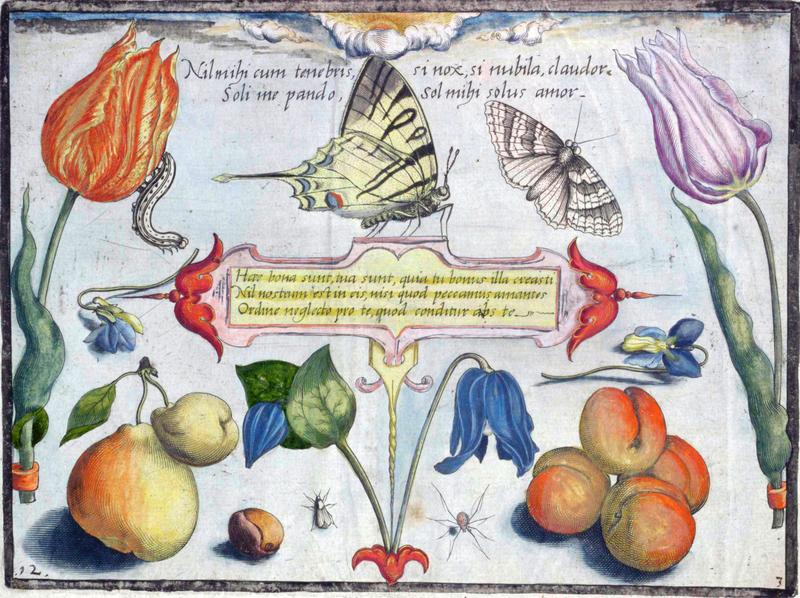 Nil mihi cum tenebris, si nox, si nubila, claudor.
Soli me pando, Sol mihi solus amor.
Haec bona sunt, tua sunt, quia tu bonus illa creasti
Nil nostrum est in eis, nisi quod peccamus amantes
Ordine neglecto pro te, quod conditur abs te.
12.
3